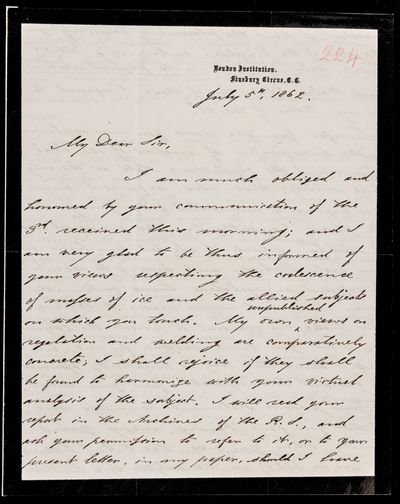 224
London Institution,
Finsbury Circus, E.C.
July 5th, 1862.
My Dear Sir,
I am much obliged and
honoured by your communication of the
3rd. received this morning; and I
am very glad to be thus informed of
your views respecting the coalescence
of masses of ice and the allied subjects
unpublished
on which you touch. My own ^ views on
regelation and welding are comparatively
concrete; I shall rejoice if they shall
be found to harmonize with your virtual
analysis of the subject. I will read your
report in the Archives of the R.S., and
ask your permission to refer to it, or to your
present letter, in any paper, should I have